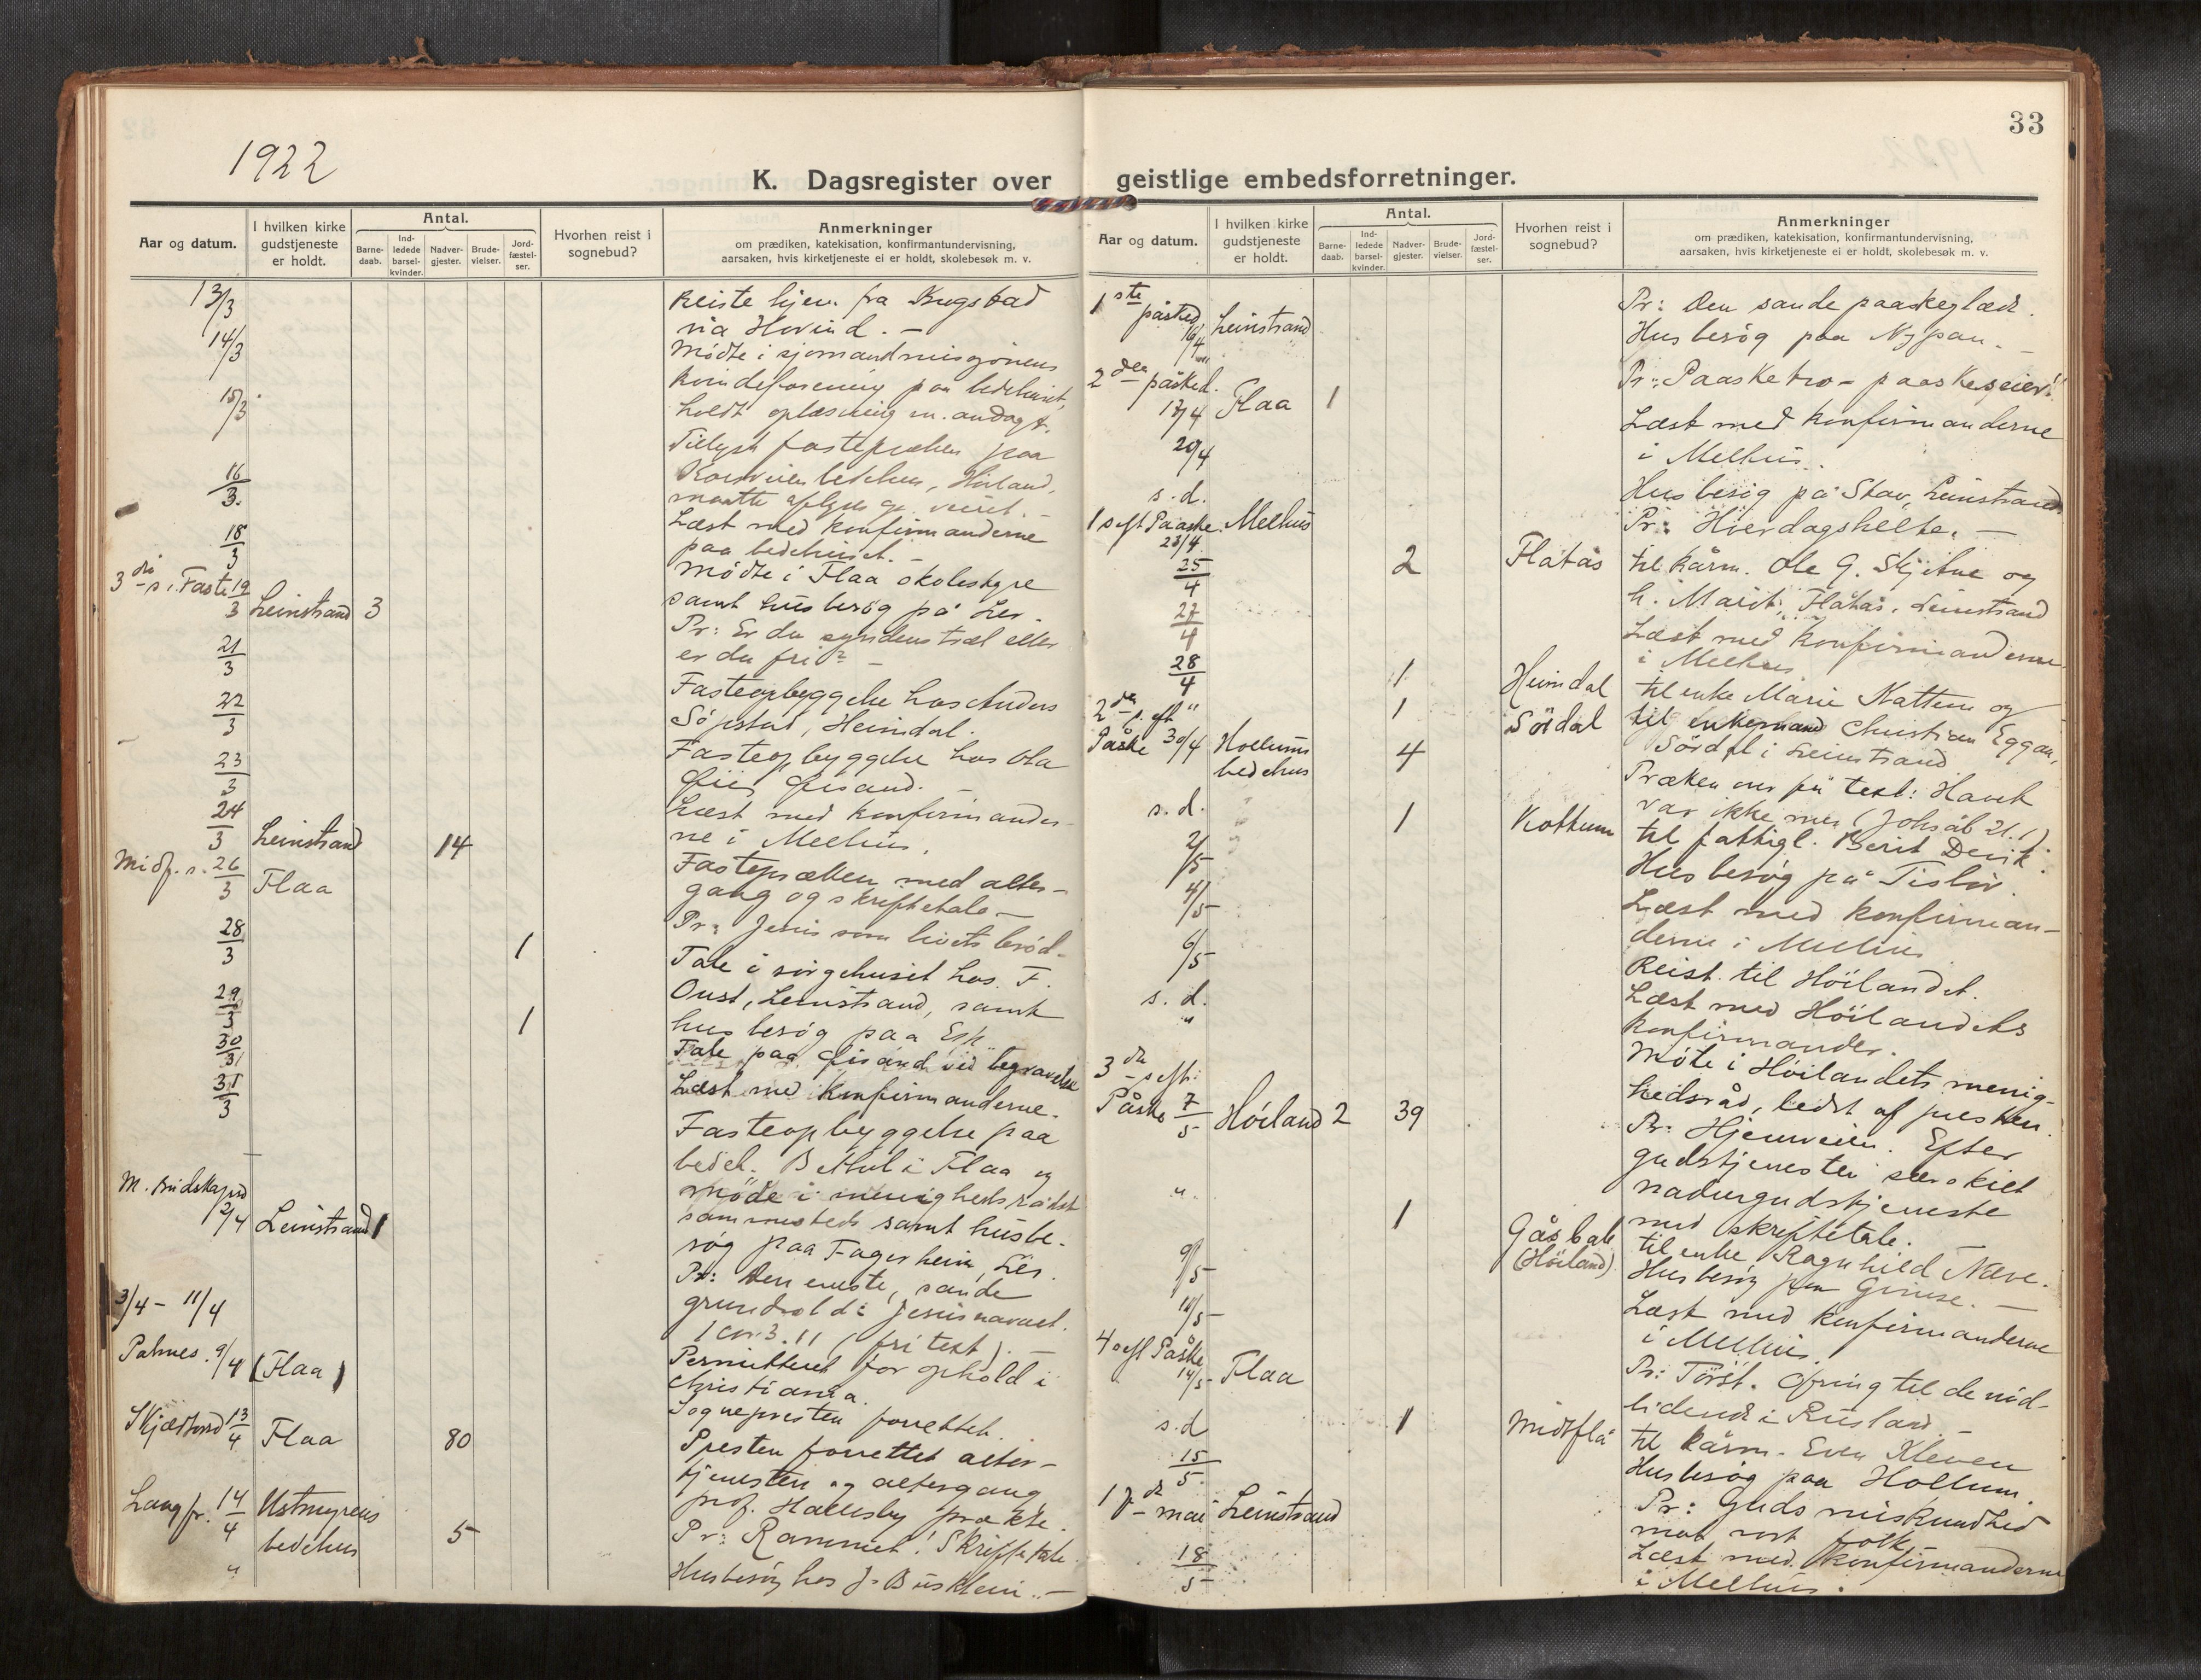 33
1922
K. Dagsregister over geistlige embedsforretninger.
Aar og datum.
I hvilken kirke gudstjeneste er holdt.
Antal.
Barnedaab.
Indledede barselkvinder.
Nadvergjester.
Brudevielser.
Jordfæstelser.
Hvorhen reist i sognebud?
Anmerkninger
om prædiken, katekisation, konfirmantundervisning,
aarsaken, hvis kirketjeneste ei er holdt, skolebesøk m. v.
13/3 Reiste hjem fra
via Hovind. –
14/3 Mødte i sjømandsmisjonens
kvindeforening paa bedehuset,
holdt oplæsning m. andagt.
15/3 Tillyst fastepræken paa
Korsveien bedehus, Høiland,
maatte aflyses gr. veiret. –
16/3 Læst med konfirmanderne
paa bedehuset. –
18/3 Mødte i Flaa skolestyre
samt husbesøg på Ler.
3die s. i Faste 19/3 Leinstrand 3 Pr: Er du syndens træl eller
er du fri? –
21/3 Fasteopbyggelse hos Anders
Søpstad, Heimdal.
22/3 Fasteopbyggelse hos Ola
23/3 Læst med konfirmander-
ne i Melhus.
24/3 Leinstrand 14 Fastepræken med alter-
gang og skriftetale –
Midf. s. 26/3 Flaa Pr: Jesus som livets brød –
28/3 1 Tale i sørgehuset hos F.
Oust, Leinstrand, samt
husbesøg paa Esp
29/3 1 Tale paa ved begravelse
30/3 Læst med konfirmanderne.
31/3 Fasteopbyggelse paa
bedeh. Bethel i Flaa og
møde i menighedsrådet
sammesteds samt husbe-
søg paa Fagerheim, Ler.
M. Budskapsd 2/4 Leinstrand 1 Pr: Den eneste, sande
grundvold: Jesusnavnet.
1 Cor. 3.11 (fri text). –
3/4 – 11/4 Permitteret for ophold i
Christiania.
Palmes. 9/4 (Flaa) Sognepresten forrettet.
Skjærtorsd 13/4 Flaa 80 Presten forrettet alter-
tjenesten og altergang
prof. Hallesby prækte.
Langfr. 14/4 Ustmyrens
bedehus 5 Pr: Rammet! Skriftetale
" Husbesøg hos J. Busklein. –
1ste påsked 16/4 Leinstrand Pr: Den sande paaskeglæde.
Husbesøg paa Nypan. –
2den påsked. 17/4 Flaa 1 Pr: Paasketro – paaskeseier!
20/4 Læst med konfirmanderne
i Melhus.
s.d. Husbesøg på Stav, Leinstrand
1 s eft Paaske 23/4 Melhus Pr: Hverdagshelte. –
25/4 2 Flatås til kårm. Ole G. Skjetne og
h. Marit, Flatås, Leinstrand
27/4 Læst med konfirmanderne
i Melhus
28/4 1 Heimdal til enke Marie Nattem og
1 Sördal til enkemand Christian Eggan,
Sördal i Leinstrand
2den s. eft "
Påske 30/4 Hollums
bedehus 4 Præken over fri text: Havet
var ikke mer (Johs. åb 21.1)
s.d. 1 Kottum til fattigl. Berit
2/5 Husbesøg på
4/5 Læst med konfirman-
derne i Melhus
6/5 Reist til Höilandet.
s. d. Læst med Höilandets
konfirmander.
" Möte i Höilandets menig-
hedsråd, ledet af presten.
3die s eft.
Påske 7/5 Höiland 2 39 Pr: Hjemveien. Efter
gudstjenesten særskilt
nadvergudstjeneste
med skriftetale.
" 1 Gåsbak
(Höiland) til enke Ragnhild Næve.
9/5 Husbesøg paa Gimse. –
11/5 Læst med konfirmanderne
i Melhus.
4 s eft Påske 14/5 Flaa Pr: Törst. Ofring til de nöd-
lidende i Rusland –
s.d 1 Midtflå til kårm. Even Kleven
15/5 Husbesøg paa Hollum.
17de mai Leinstrand Pr: Guds miskundhed
mot vort folk
18/5 Læst med konfirmanderne
i Melhus.